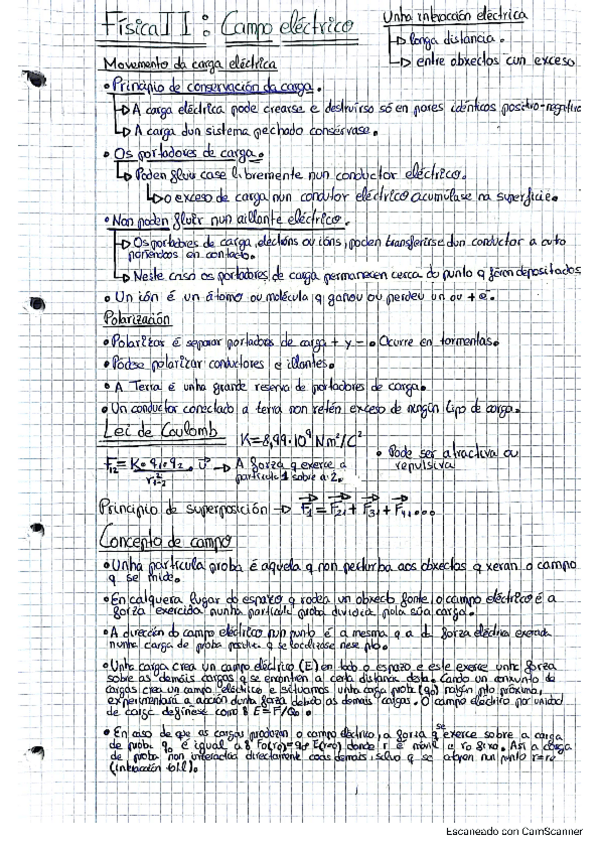 Física II : Campo eléctrico
Unha interacción eléctrica
longa distancia.
entre obxectos cun exceso
Movemento da carga eléctrica
• Principio de conservación da carga.
A carga eléctrica pode crearse e destruirse só en pares idénticos positivo-negativo
A carga dun sistema pechado consérvase.
• Os portadores de carga.
Poden fluír case libremente nun conductor eléctrico.
o exceso de carga nun condutor eléctrico acumúlase na superficie.
• Non poden fluír nun aillante eléctrico.
Os portadores de carga, electróns ou ións, poden transferirse dun conductor a outo
poñendoos en contacto.
Neste caso os portadores de carga permanecen cerca do punto q foron depositados
• Un ión é un átomo ou molécula q ganou ou perdeu un ou + e⁻.
Polarización
• Polarizar é separar portadores de carga + y −. Ocurre en tormentas.
• Pódse polarizar conductores e illantes.
• A Terra é unha grande reserva de portadores de carga.
• Un conductor conectado a terra non retén exceso de ningún tipo de carga.
Lei de Coulomb K=8,99·10⁹ Nm²/C²
• Pode ser atractiva ou
repulsiva
F₁₂ = K·q₁·q₂ / r²₁₋₂ · u → A forza q exerce a
partícula 1 sobre a 2.
Principio de superposición → F₁ = F₂₁ + F₃₁ + F₄₁...
Concepto de campo
• Unha partícula proba é aquela q non perturba aos obxectos q xeran o campo
q se mide.
• En calquera lugar do espazo q rodea un obxecto fonte, o campo eléctrico é a
forza exercida nunha partícula proba dividida pola súa carga.
• A dirección do campo eléctrico nun punto é a mesma q a da forza eléctrica exercida
nunha carga de proba positiva q se localizase nese pto.
• Unha carga crea un campo eléctrico (E) en todo o espazo e este exerce unha forza
sobre as demáis cargas q se encontren a certa distancia desta. Cando un conxunto de
cargas crea un campo eléctrico e situamos unha carga proba (q₀) nalgún pto próximo,
experimentará a acción dunha forza debido as demais cargas. O campo eléctrico por unidad
de carga defínese como: E = F/q₀.
• En caso de que as cargas produzan o campo eléctrico, a forza q se exerce sobre a carga
de proba q₀ é igual a: F₀(r₀)=q₀·E(r₀) donde r é móvil e r₀ fixo. Así a carga
de proba non interactúa directamente coas demais, salvo q se atopen nun punto r=r₀
(interacción
Escaneado con CamScanner